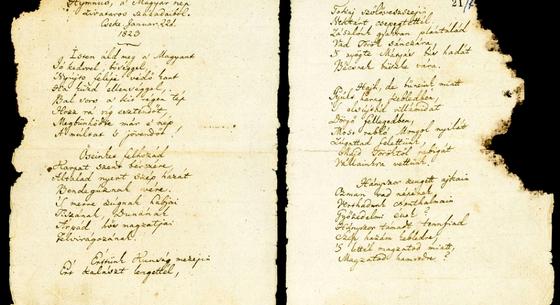 Hymnus, a Magyar nép
zivataros századaiból.
Cseke. Januar. 22d.
1823
Isten áldd meg a Magyart
Jó kedvvel, bőséggel,
Nyújts feléje védő kart
Ha küzd ellenséggel,
Bal sors a kit régen tép
Hozz rá víg esztendőt,
Megbűnhődte már e nép
A multat 's jövendőt!
Őseinket felhozád
Karpat szent bérczére,
Általad nyert szép hazát
Bendegúznak vére.
'S merre zúgnak habjai
Tiszának, Dunának
Árpád hős magzatjai
Felvirágozának.
Értünk Kunság mezein
Ért kalászt lengettél,
21
Tokaj szőlővesszein
Nektárt csepegtettél.
Zászlónk gyakran plántálád
Vad Török sánczára,
'S nyögte Mátyás bús hadát
Bécsnek büszke vára.
Hajh, de bűneink miatt
Gyúlt harag kebledben,
'S elsujtád villámidat
Dörgő fellegedben,
Most rabló Mongol nyilát
Zúgattad felettünk,
Majd Töröktől rabigát
Vállainkra vettünk.
Hányszor zengett ajkain
Ozman vad népének
Vert hadunk csonthalmain
Győzedelmi ének!
Hányszor támadt tennfiad
Szép hazám kebledre,
'S lettél magzatod miatt
Magzatod hamvvedre?